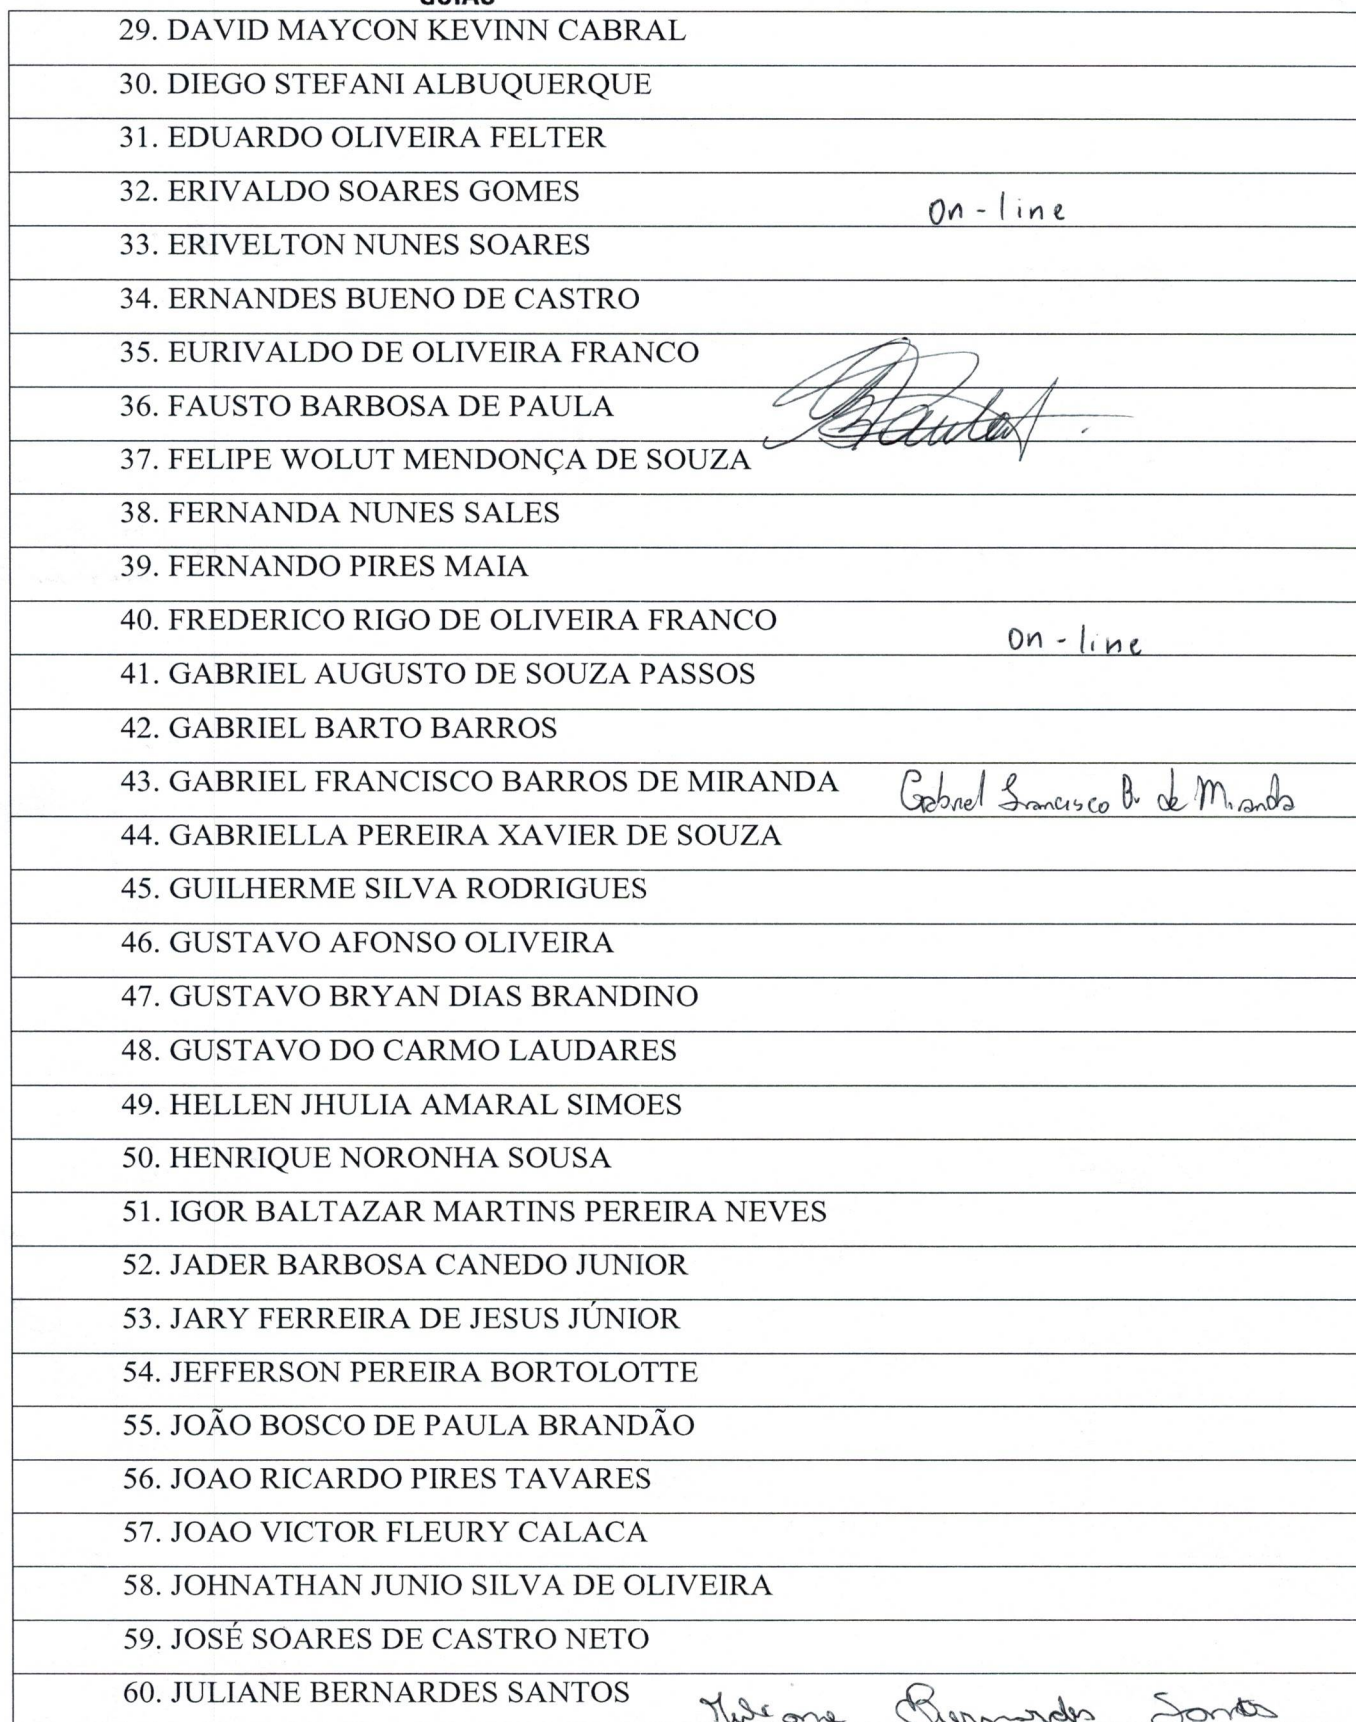 GOIÁS
29. DAVID MAYCON KEVINN CABRAL
30. DIEGO STEFANI ALBUQUERQUE
31. EDUARDO OLIVEIRA FELTER
32. ERIVALDO SOARES GOMES On-line
33. ERIVELTON NUNES SOARES
34. ERNANDES BUENO DE CASTRO
35. EURIVALDO DE OLIVEIRA FRANCO
36. FAUSTO BARBOSA DE PAULA
37. FELIPE WOLUT MENDONÇA DE SOUZA
38. FERNANDA NUNES SALES
39. FERNANDO PIRES MAIA
40. FREDERICO RIGO DE OLIVEIRA FRANCO On-line
41. GABRIEL AUGUSTO DE SOUZA PASSOS
42. GABRIEL BARTO BARROS
43. GABRIEL FRANCISCO BARROS DE MIRANDA Gabriel Francisco B. de Miranda
44. GABRIELLA PEREIRA XAVIER DE SOUZA
45. GUILHERME SILVA RODRIGUES
46. GUSTAVO AFONSO OLIVEIRA
47. GUSTAVO BRYAN DIAS BRANDINO
48. GUSTAVO DO CARMO LAUDARES
49. HELLEN JHULIA AMARAL SIMOES
50. HENRIQUE NORONHA SOUSA
51. IGOR BALTAZAR MARTINS PEREIRA NEVES
52. JADER BARBOSA CANEDO JUNIOR
53. JARY FERREIRA DE JESUS JÚNIOR
54. JEFFERSON PEREIRA BORTOLOTTE
55. JOÃO BOSCO DE PAULA BRANDÃO
56. JOAO RICARDO PIRES TAVARES
57. JOAO VICTOR FLEURY CALACA
58. JOHNATHAN JUNIO SILVA DE OLIVEIRA
59. JOSÉ SOARES DE CASTRO NETO
60. JULIANE BERNARDES SANTOS Juliane Bernardes Santos